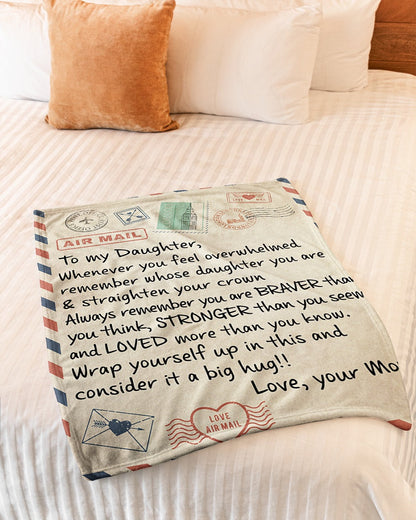 AIR MAIL
To my Daughter,
Whenever you feel overwhelmed
remember whose daughter you are
& straighten your crown
Always remember you are BRAVER than
you think, STRONGER than you seem
and LOVED more than you know.
Wrap yourself up in this and
consider it a big hug!!
Love, your Mo
LOVE
AIR MAIL